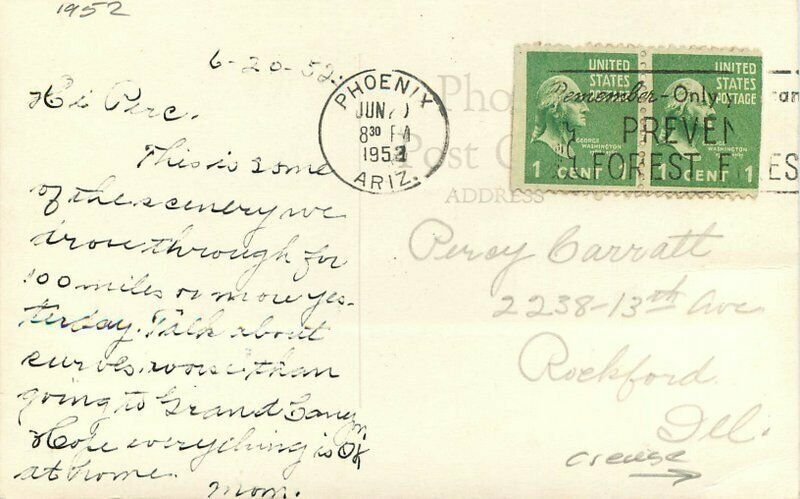 1952
6-20-52.
Hi Perc.
This is some
of the scenery we
drove through for
100 miles or more yes-
terday. Talk about
curves. worse than
going to Grand Canyon.
Hope everything is OK
at home.
Mom.
PHOENIX
JUN 20
8 30 PM
1952
ARIZ.
UNITED STATES POSTAGE
GEORGE WASHINGTON
1 CENT 1
UNITED STATES POSTAGE
GEORGE WASHINGTON
1 CENT 1
Remember-Only
PREVEN
FOREST FIRES
Post
ADDRESS
Percy Carratt
2238-13th Ave
Rockford
Ill.
crease